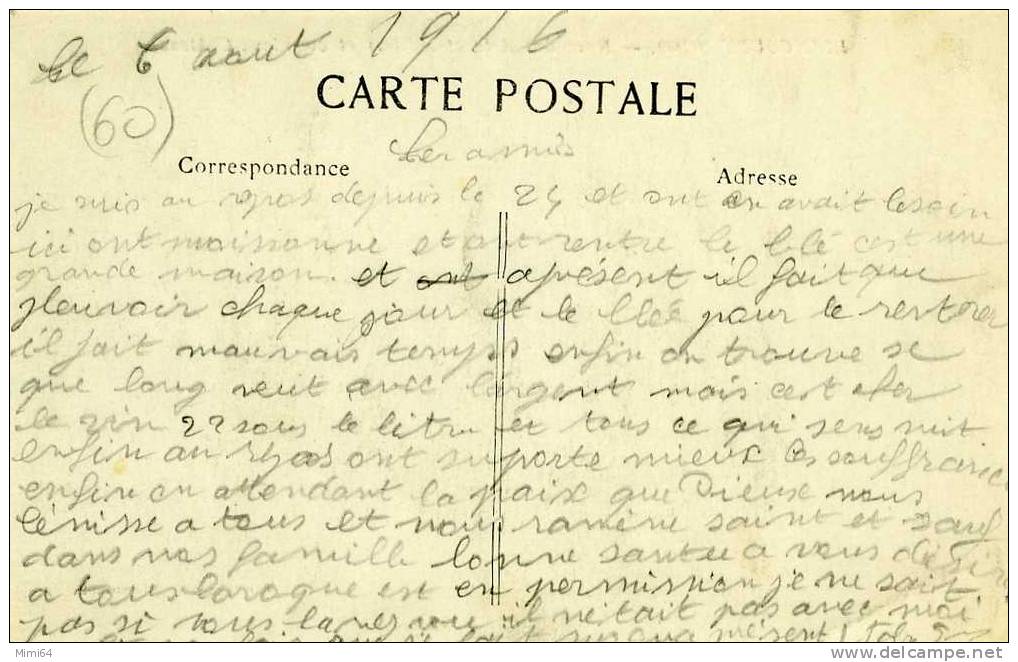 le 6 aout 1916
CARTE POSTALE
(60)
Cher amis
Correspondance
Adresse
je suis au repos depuis le 24 et ont en avait besoin
ici ont moissonne et ont rentre le blé cest une
grande maison. et ont aprésent il fait que
pleuvoir chaque jour et le bleé pour le rentrer
il fait mauvais temps enfin on trouve se
que long veut avec largent mais cest cher
le vin 22 sous le litre et tous ce qui sens suit
enfin au repos ont suporte mieux les souffrance
enfin en attendant la paix que Dieux nous
bénisse a tous et nous ramène saint et sauf
dans nos famille bonne santee a vous désire
a tous laroque est en permission je ne sait
pas si vous laver vu il nétait pas avec moi
Mimi64
delcampe.net